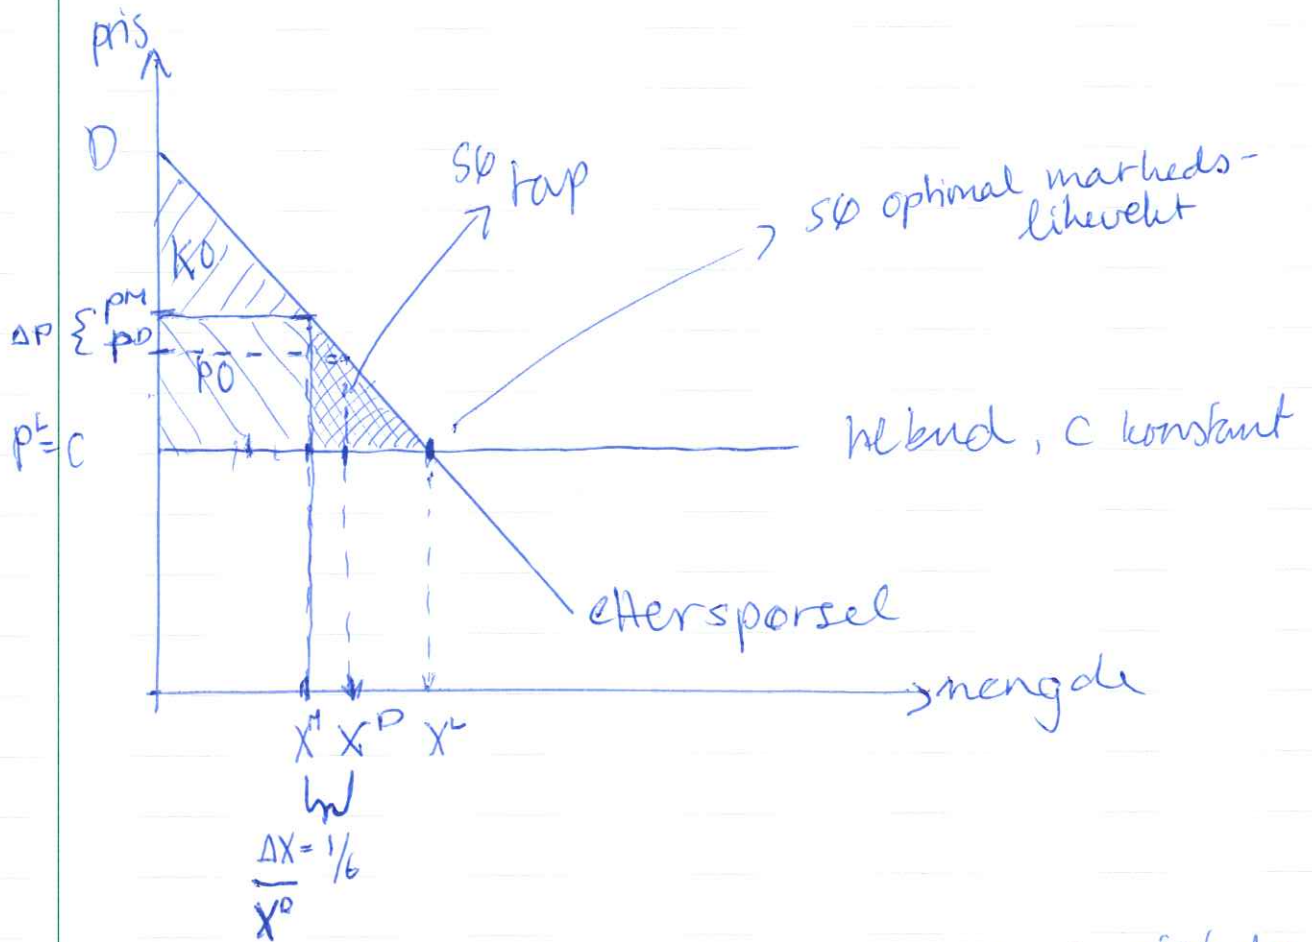 pris
D
SØ tap
SØ optimal markeds-
likevekt
KO
pM
ΔP { pD
PO
pL = C
tilbud, C konstant
etterspørsel
mengde
XM XD XL
ΔX = 1/6
XD